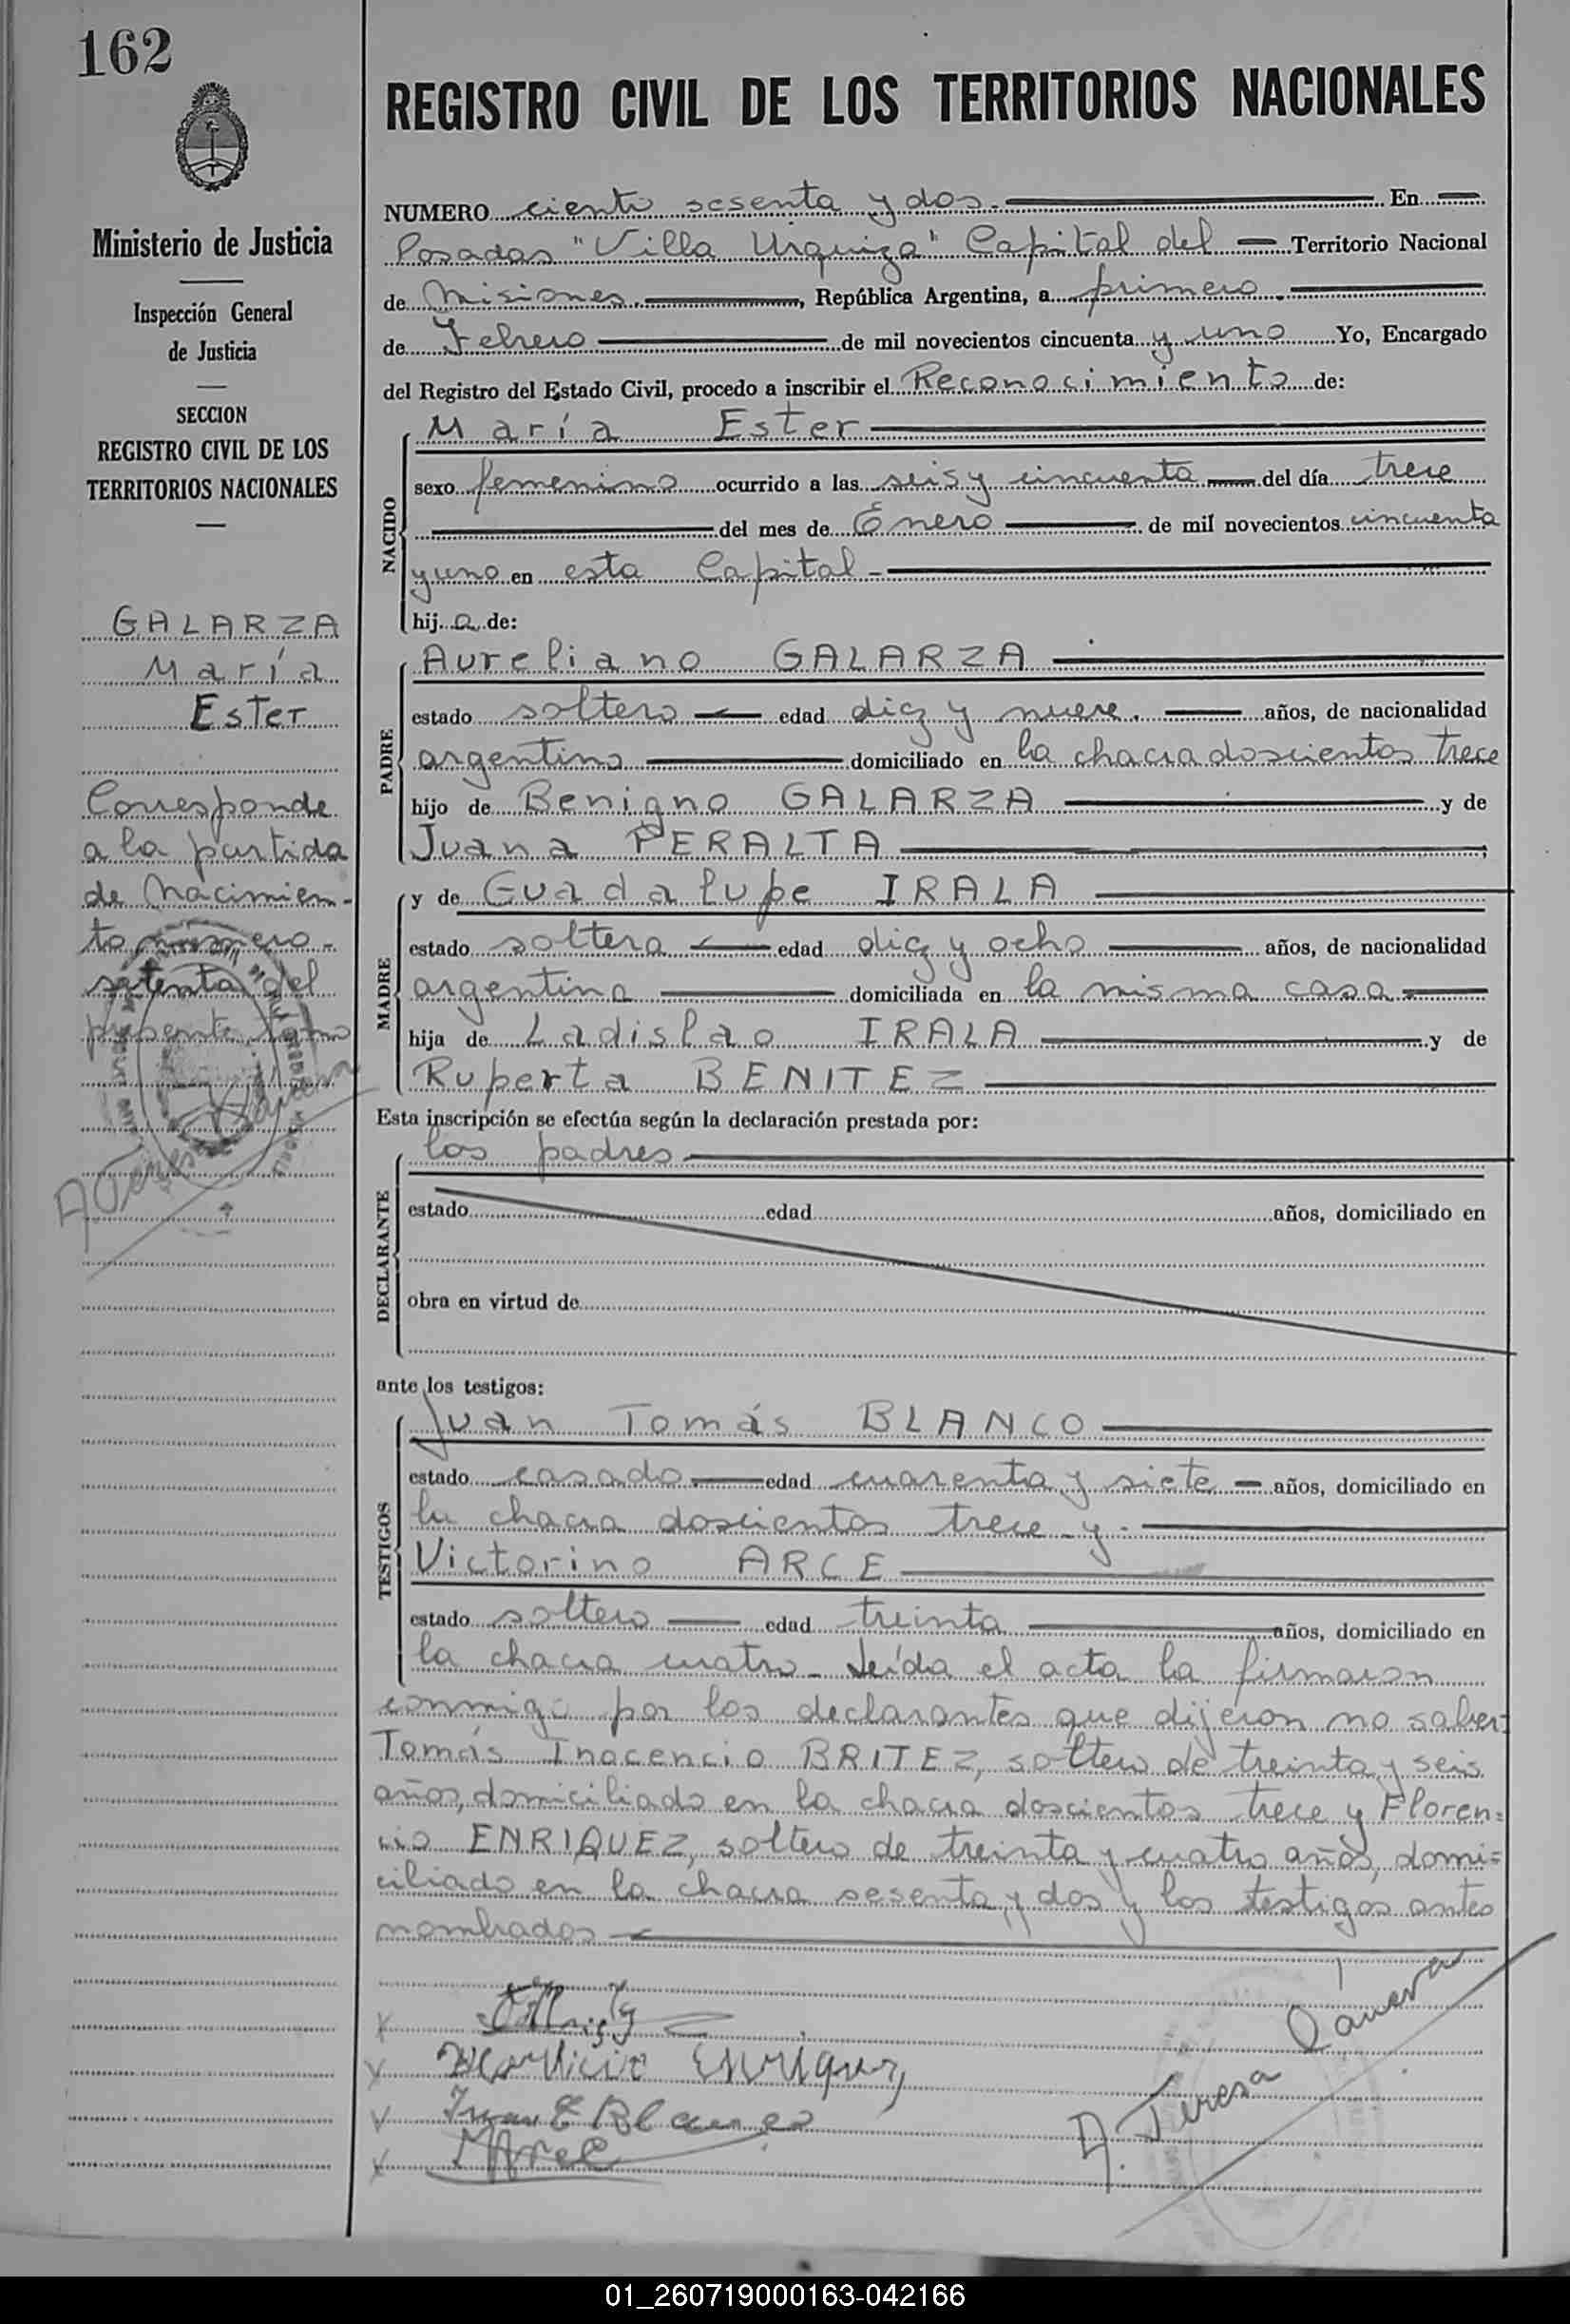 162
Ministerio de Justicia
Inspección General
de Justicia
SECCION
REGISTRO CIVIL DE LOS
TERRITORIOS NACIONALES
GALARZA
María
Ester
Corresponde
a la partida
de Nacimien-
to número
setenta del
presente tomo
REGISTRO CIVIL DE LOS TERRITORIOS NACIONALES
NUMERO ciento sesenta y dos. En
Posadas "Villa Urquiza" Capital del Territorio Nacional
de Misiones, República Argentina, a primero.
de Febrero de mil novecientos cincuenta y uno Yo, Encargado
del Registro del Estado Civil, procedo a inscribir el Reconocimiento de:
NACIDO
María Ester
sexo femenino ocurrido a las seis y cincuenta del día trece
del mes de Enero de mil novecientos cincuenta
y uno en esta Capital
hija de:
PADRE
Aureliano GALARZA
estado soltero edad diez y nueve. años, de nacionalidad
argentino domiciliado en la chacra doscientos trece
hijo de Benigno GALARZA y de
Juana PERALTA ;
MADRE
y de Guadalupe IRALA
estado soltera edad diez y ocho años, de nacionalidad
argentina domiciliada en la misma casa
hija de Ladislao IRALA y de
Ruperta BENITEZ
Esta inscripción se efectúa según la declaración prestada por:
DECLARANTE
los padres
estado edad años, domiciliado en
obra en virtud de
ante los testigos:
TESTIGOS
Juan Tomás BLANCO
estado casado edad cuarenta y siete años, domiciliado en
la chacra doscientos trece y
Victorino ARCE
estado soltero edad treinta años, domiciliado en
la chacra cuatro. Leída el acta la firmaron
conmigo por los declarantes que dijeron no saber:
Tomás Inocencio BRITEZ, soltero de treinta y seis
años, domiciliado en la chacra doscientos trece y Floren=
cio ENRIQUEZ, soltero de treinta y cuatro años, domi=
ciliado en la chacra sesenta y dos y los testigos antes
nombrados
Enriquez
Juan T Blanco
A. Teresa
01_260719000163-042166